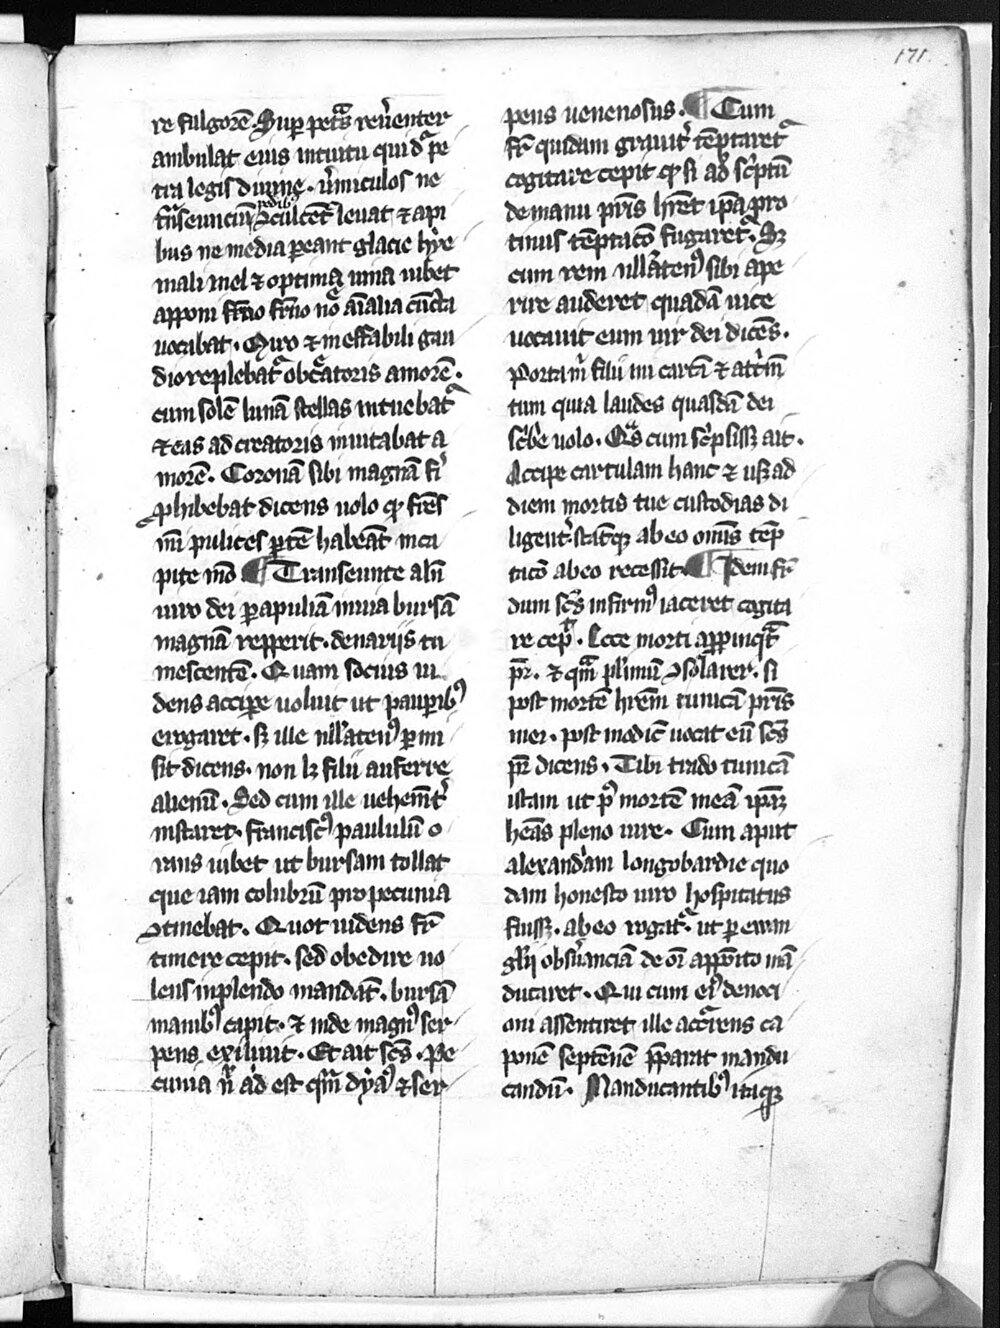 171.
re fulgorē. Sup petᵃs reūenter
ambulat eius intuitu qui dr̄ pe
tra legis diuine. ūmiculos ne
tn̄seunciū pedibꝰ ꝯculcēt leuat ⁊ api
bus ne media peant glacie hye
mali mel ⁊ optima uina iubet
apponi frn̄o nōe aīalia cūcta
uocabat. Miro ⁊ ineffabili gau
dio replebatᷣ ob cᵃtoris amorē.
cum solē lunā stellas intuebatᷣ
⁊ eas ad creatoris inuitabat a
morē. Coronā sibi magnā fi
ꝓhibebat dicens uolo ꝙ frēs
mī pulices ptē habeāt in ca
pite mō ¶ Transeunte alīi
uiro dei p apuliā in uia bursā
magnā repperit. denarijs tu
mescentē. Quam socius ui
dens accipe uoluit ut paupibꝰ
erogaret. sꝫ ille nllatenꝰ pmi
sit dicens. non lꝫ fili auferre
alienū. Sed cum ille uehemt̄
instaret. franciscꝰ paululū o
rans iubet ut bursam tollat
que iam colubrū pro pecunia
ꝯtinebat. Quot uidens fr̄
timere cepit. sed obedire uo
lens inplendo mandat̄. bursā
manibꝰ capit. ⁊ inde magnꝰ ser
pens exiliuit. Et ait scs̄. Pe
cunia n̄ ad est qm̄ dyaꝰ ⁊ ser
pens uenenosus. ¶ Cum
fr̄ quidam grauit̄ tēptaretᷣ
cogitare cepit ꝙ si ad sc̄ptū
de manu pr̄is hr̄et ip̄a pro
tinus tēptacō fugaretᷣ. Sꝫ
cum rem nllatenꝰ sibi ape
rire auderet quadā uice
uocauit eum uir dei dicēs.
Porta m̄ fili mi cartā ⁊ att̄m
tum quia laudes quasdā dei
sc̄be uolo. Qᵃs cum sc̄psissꝫ ait.
Accipe cartulam hanc ⁊ usqꝫ ad
diem mortis tue custodias di
ligent̄. statīqꝫ ab eo omīs tēp
tacō ab eo recessit. ¶ Idem fr̄
dum scs̄ infirmꝰ iaceret cogita
re cepᷣ. Ecce morti appinqᵃt
pr̄. ⁊ qm̄ plimū ꝯsolarer. si
post mortē hrēm tunicā pr̄is
mei. post modic̄ uocat eū scs̄
pr̄ dicens. Tibi trado tunicā
istam ut pᷣ mortē meā ip̄aꝫ
heās pleno iure. Cum aput
alexandriam longobardie quo
dam honesto uiro hospitatus
fuissꝫ. ab eo rogatᷣ. ut p ewan
glīj obsūanciā de oī apposito mā
ducaret. Qui cum eiꝰ deuoci
oni assentiret ille accᷣrens ca
ponē septēnē pparat mandu
candū. Manducantibꝰ itaqꝫ